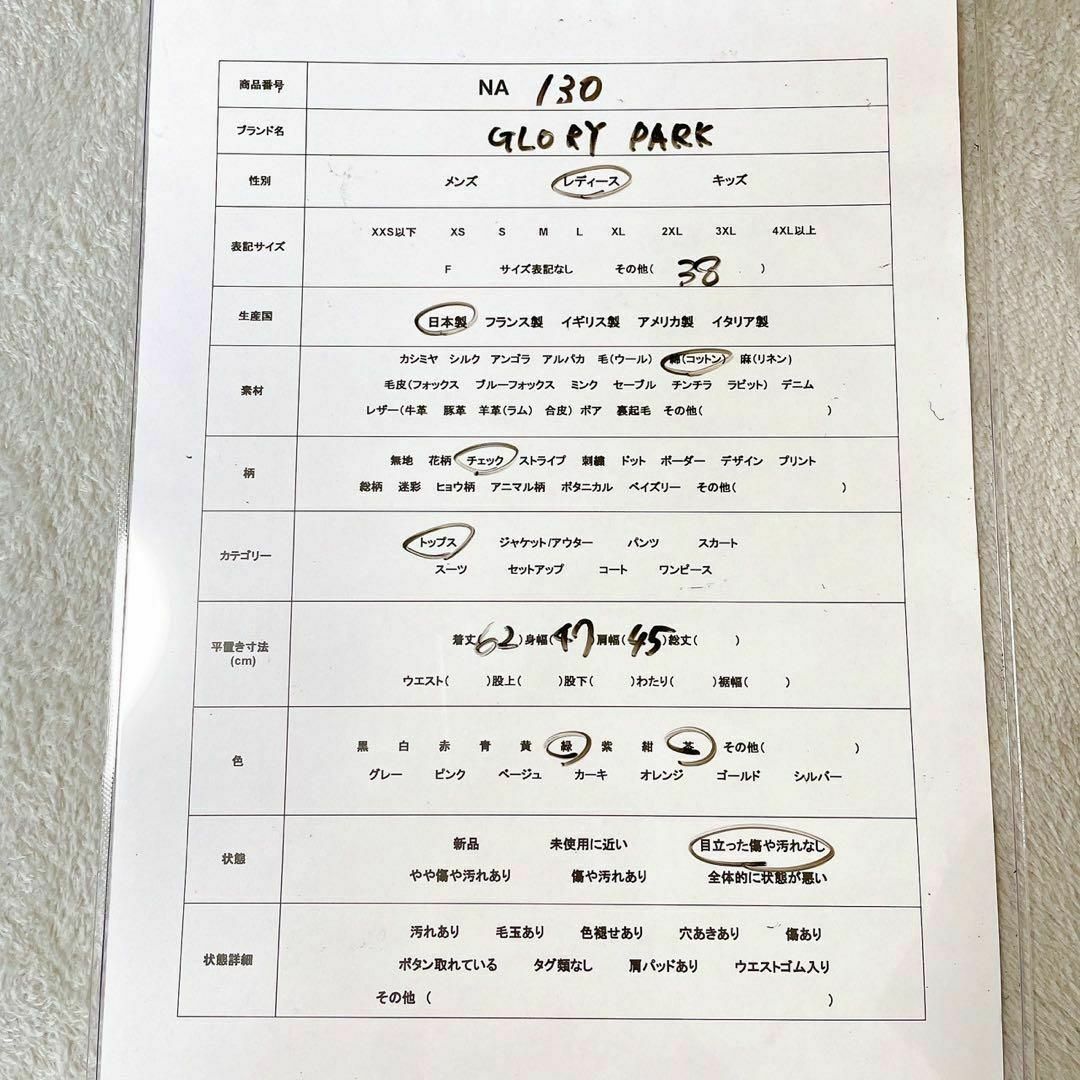 商品番号 NA 130
ブランド名 GLORY PARK
性別 メンズ レディース キッズ
表記サイズ XXS以下 XS S M L XL 2XL 3XL 4XL以上
F サイズ表記なし その他( 38 )
生産国 日本製 フランス製 イギリス製 アメリカ製 イタリア製
カシミヤ シルク アンゴラ アルパカ 毛(ウール) 綿(コットン) 麻(リネン)
素材 毛皮(フォックス ブルーフォックス ミンク セーブル チンチラ ラビット) デニム
レザー(牛革 豚革 羊革(ラム) 合皮) ボア 裏起毛 その他( )
柄 無地 花柄 チェック ストライプ 刺繍 ドット ボーダー デザイン プリント
総柄 迷彩 ヒョウ柄 アニマル柄 ボタニカル ペイズリー その他( )
カテゴリー トップス ジャケット/アウター パンツ スカート
スーツ セットアップ コート ワンピース
平置き寸法 着丈( 62 )身幅( 47 )肩幅( 45 )総丈( )
(cm) ウエスト( )股上( )股下( )わたり( )裾幅( )
色 黒 白 赤 青 黄 緑 紫 紺 茶 その他( )
グレー ピンク ベージュ カーキ オレンジ ゴールド シルバー
状態 新品 未使用に近い 目立った傷や汚れなし
やや傷や汚れあり 傷や汚れあり 全体的に状態が悪い
状態詳細 汚れあり 毛玉あり 色褪せあり 穴あきあり 傷あり
ボタン取れている タグ類なし 肩パッドあり ウエストゴム入り
その他 ( )